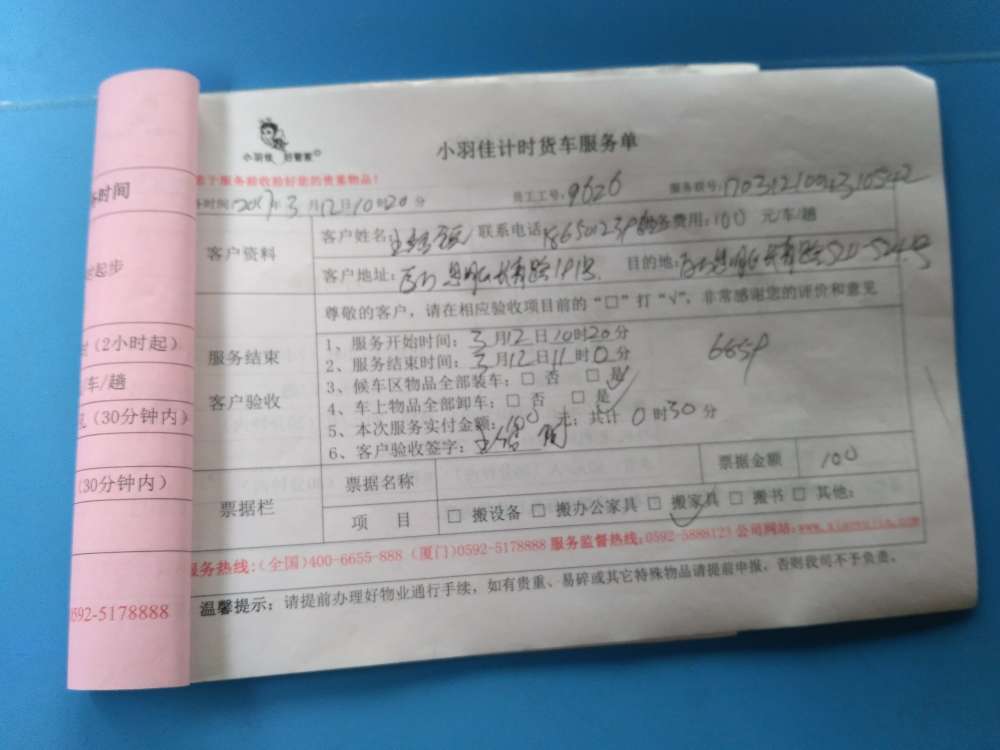 小羽佳 好管家
小羽佳计时货车服务单
于服务前收拾好您的贵重物品！
务时间:2017年3月12日10时20分 员工工号:9626 服务联号:
客户资料
客户姓名: 联系电话: 服务费用:100 元/车/趟
客户地址: 目的地:
尊敬的客户，请在相应验收项目前的“□”打“√”，非常感谢您的评价和意见
服务结束
客户验收
1、服务开始时间：3月12日10时20分
2、服务结束时间：3月12日11时0分
3、候车区物品全部装车：□ 否 □ 是
4、车上物品全部卸车：□ 否 □ 是
5、本次服务实付金额：100 元；共计 0 时30分
6、客户验收签字：
票据栏
票据名称 票据金额 100
项 目 □ 搬设备 □ 搬办公家具 □ 搬家具 □ 搬书 □ 其他：
服务热线:(全国)400-6655-888 (厦门)0592-5178888 服务监督热线:0592-5888123 公司网站:
温馨提示：请提前办理好物业通行手续，如有贵重、易碎或其它特殊物品请提前申报，否则我司不予负责。
时间
起步
(2小时起)
车/趟
(30分钟内)
(30分钟内)
0592-5178888